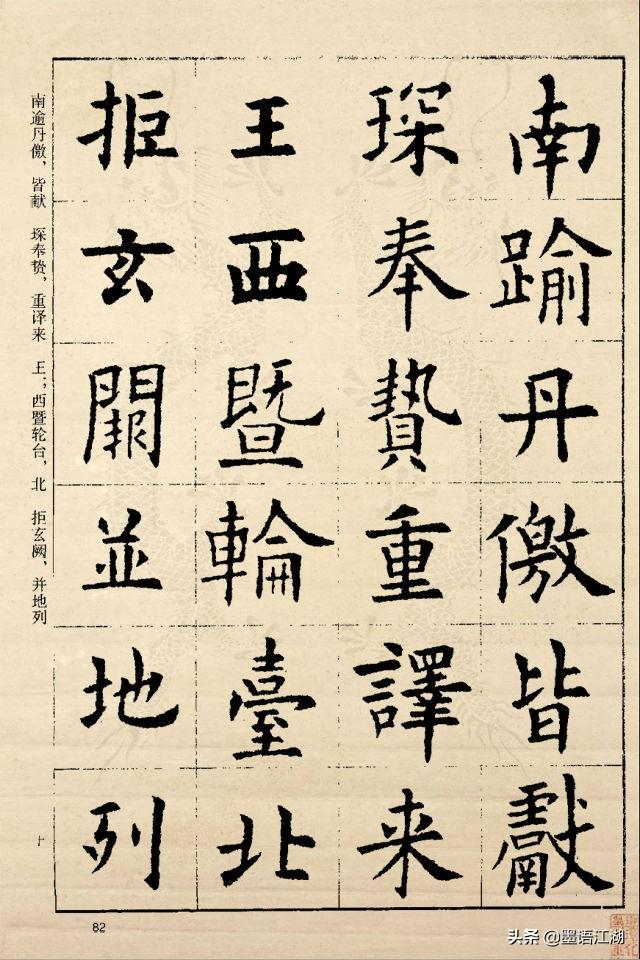 南踰丹徼皆獻
琛奉贄重譯來
王西暨輪臺北
拒玄闕並地列
南逾丹徼，皆献 琛奉贽，重译来 王；西暨轮台，北 拒玄阙，并地列
十
82
头条 @墨语江湖